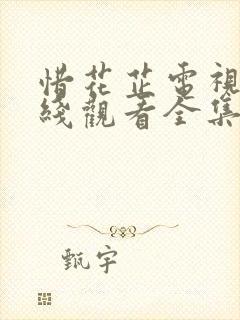 惜花芷電視
綫觀看全集
甄宇